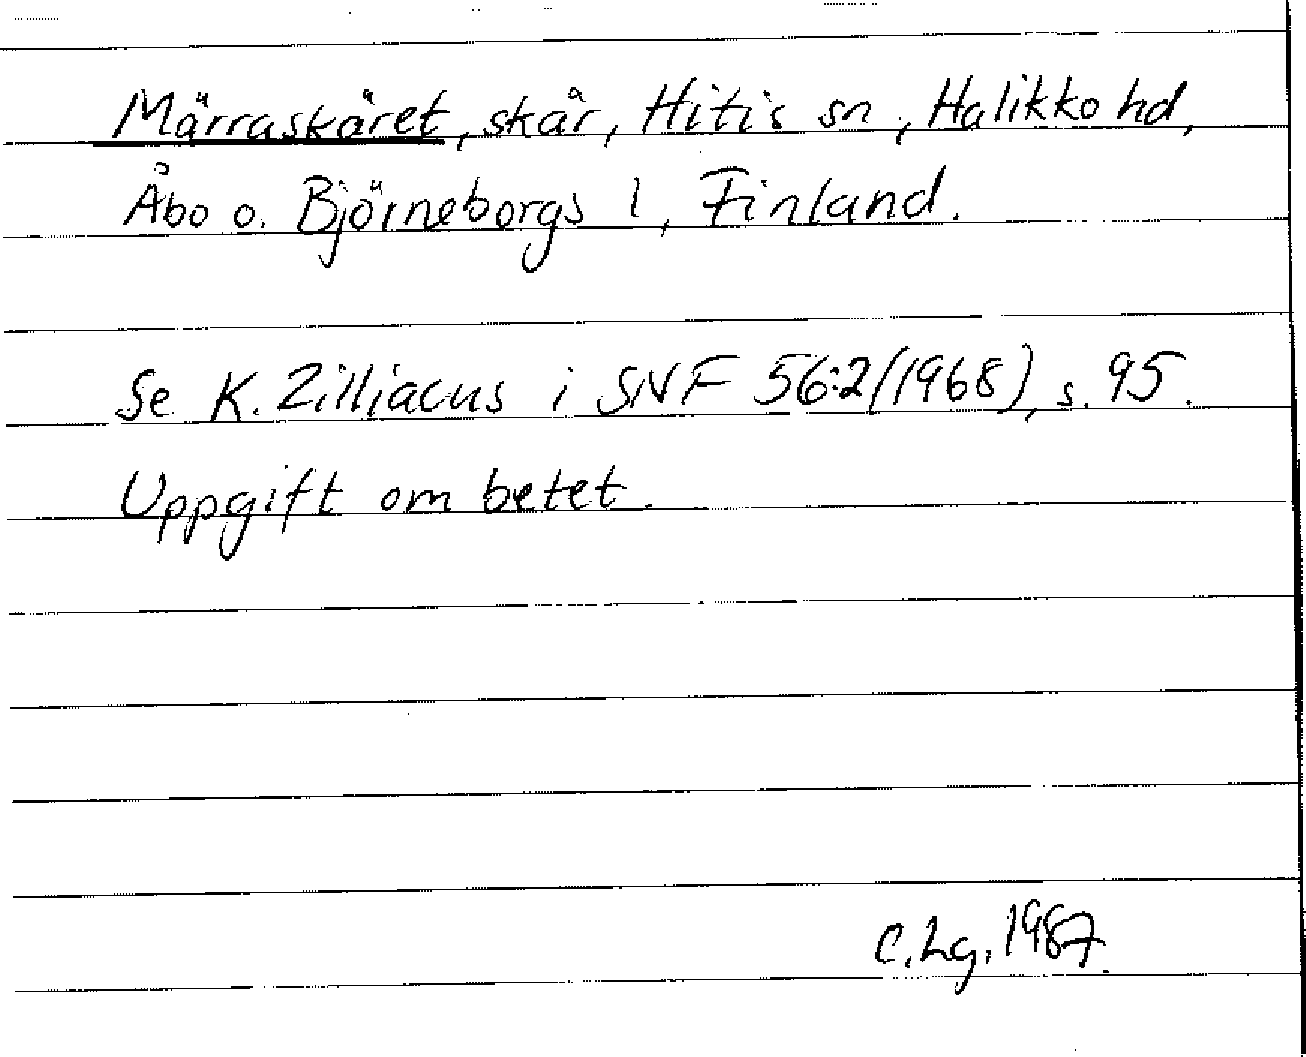 Märraskäret, skär, Hitis sn, Halikko hd,
Åbo o. Björneborgs l, Finland.
Se K. Zilliacus i SNF 56:2 (1968), s. 95.
Uppgift om betet.
C. Lg, 1987.